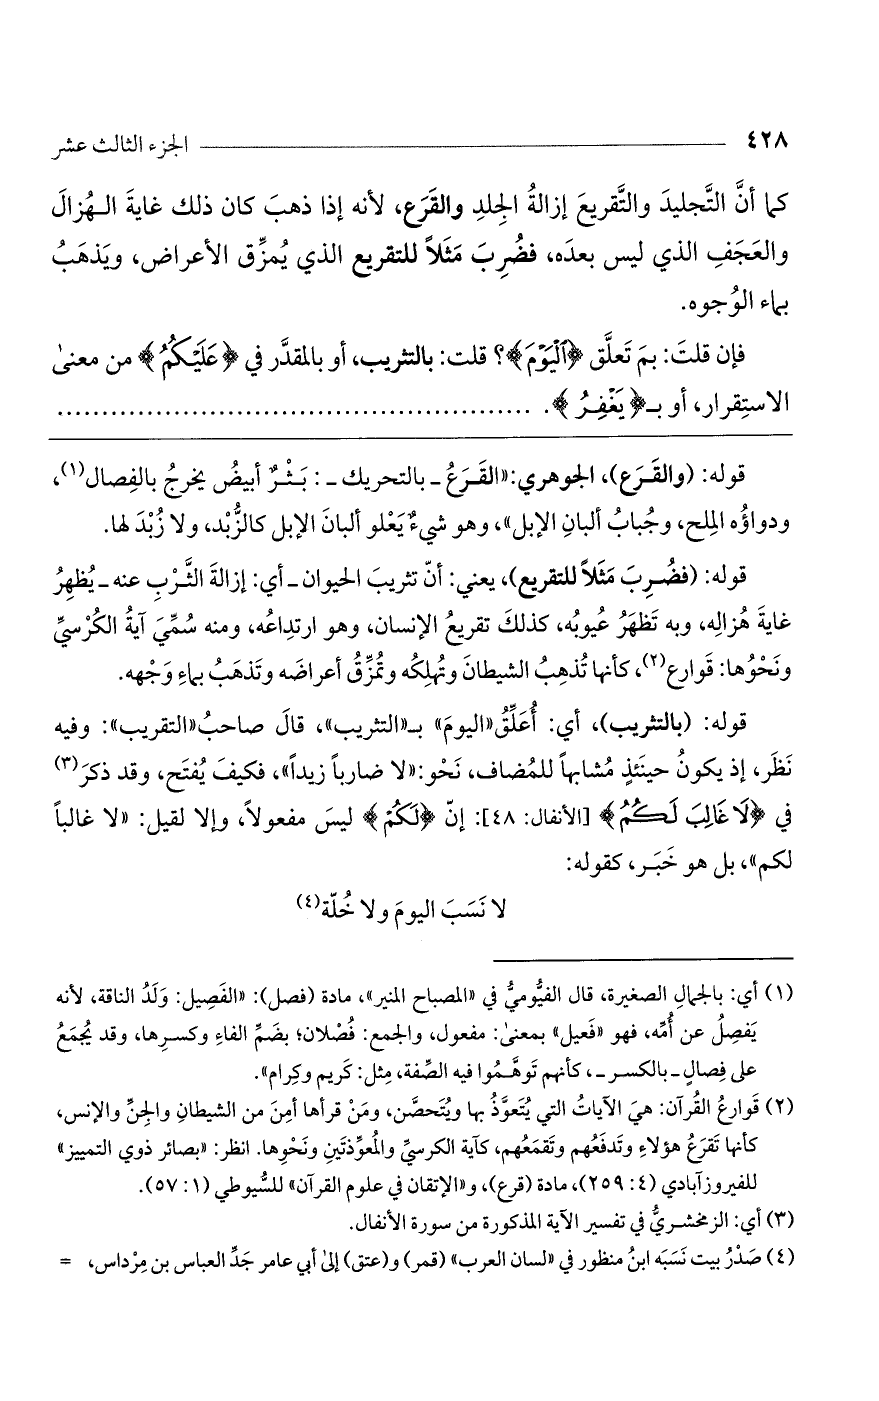 ٤٢٨ الجزء الثالث عشر
كما أنَّ التَّجليدَ والتَّقريعَ إزالةُ الجِلدِ والقَرَع، لأنه إذا ذهبَ كان ذلك غايةَ الـهُزالَ
والعَجَفِ الذي ليس بعدَه، فضُرِبَ مَثَلاً للتقريع الذي يُمزِّق الأعراض، ويَذهَبُ
بماء الوُجوه.
فإن قلتَ: بمَ تَعلَّق ﴿ٱلْيَوْمَ﴾؟ قلت: بالتثريب، أو بالمقدَّر في ﴿عَلَيْكُمُ﴾ من معنىٰ
الاستِقرار، أو بـ﴿يَغْفِرُ﴾. ....................................................
قوله: (والقَـرَع)، الجوهري: «القَـرَعُ ـ بالتحريك ـ: بَـثْـرٌ أبيضُ يخرجُ بالفِصال(١)،
ودواؤُه المِلح، وجُبابُ ألبانِ الإبل»، وهو شيءٌ يَعْلو ألبانَ الإبل كالزُّبْد، ولا زُبْدَ لها.
قوله: (فضُـرِبَ مَثَلاً للتقريع)، يعني: أنّ تثريبَ الحيوان ـ أي: إزالةَ الثَّـرْبِ عنه ـ يُظهِرُ
غايةَ هُزالِه، وبه تَظهَرُ عُيوبُه، كذلكَ تقريعُ الإنسان، وهو ارتِداعُه، ومنه سُمِّيَ آيةُ الكُرْسيِّ
ونَحْوُها: قَوارع(٢)، كأنها تُذهِبُ الشيطانَ وتُهلِكُه وتُمزِّقُ أعراضَه وتَذهَبُ بماءِ وَجْهه.
قوله: (بالتثريب)، أي: أُعَلِّقُ «اليومَ» بـ«التثريب»، قالَ صاحبُ «التقريب»: وفيه
نَظَر، إذ يكونُ حينَئذٍ مُشابهاً للمُضاف، نَحْو: «لا ضارباً زيداً»، فكيفَ يُفتَح، وقد ذكرَ(٣)
في ﴿لَا غَالِبَ لَكُمُ﴾ [الأنفال: ٤٨]: إنّ ﴿لَكُمُ﴾ ليسَ مفعولاً، وإلا لقيل: «لا غالباً
لكم»، بل هو خَبَـر، كقوله:
لا نَسَبَ اليومَ ولا خُلّة(٤)
(١) أي: بالجمالِ الصغيرة، قال الفيُّوميُّ في «المصباح المنير»، مادة (فصل): «الفَصِيل: وَلَدُ الناقة، لأنه
يَفصِلُ عن أُمِّه، فهو «فَعيل» بمعنىٰ: مفعول، والجمع: فُصْلان؛ بضَمِّ الفاءِ وكسـرِها، وقد يُجمَعُ
على فِصالٍ ـ بالكسر ـ، كأنهم تَوهَّـمُوا فيه الصِّفة، مِثل: كَريم وكِرام».
(٢) قَوارعُ القُرآن: هيَ الآياتُ التي يُتَعوَّذُ بها ويُتَحصَّن، ومَنْ قرأها أمِنَ من الشيطانِ والجنِّ والإنس،
كأنها تَقرَعُ هؤلاءِ وتَدفَعُهم وتَقمَعُهم، كآية الكرسيِّ والمُعوِّذتَينِ ونَحْوِها. انظر: «بصائر ذوي التمييز»
للفيروزآبادي (٤: ٢٥٩)، مادة (قرع)، و«الإتقان في علوم القرآن» للسُّيوطي (١: ٥٧).
(٣) أي: الزمخشـريُّ في تفسير الآية المذكورة من سورة الأنفال.
(٤) صَدْرُ بيت نَسَبَه ابنُ منظور في «لسان العرب» (قمر) و(عتق) إلىٰ أبي عامر جَدِّ العباس بن مِرْداس، =